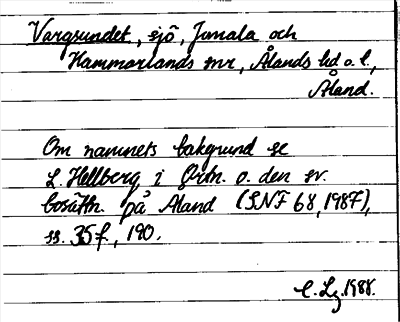 Vargsundet, sjö, Jomala och
Hammarlands snr, Ålands hd o. l.,
Åland.
Om namnets bakgrund se
L. Hellberg i Ortn. o. den sv.
bosättn. på Åland (SNF 68, 1987),
ss. 35f., 190.
C. Lg. 1988.